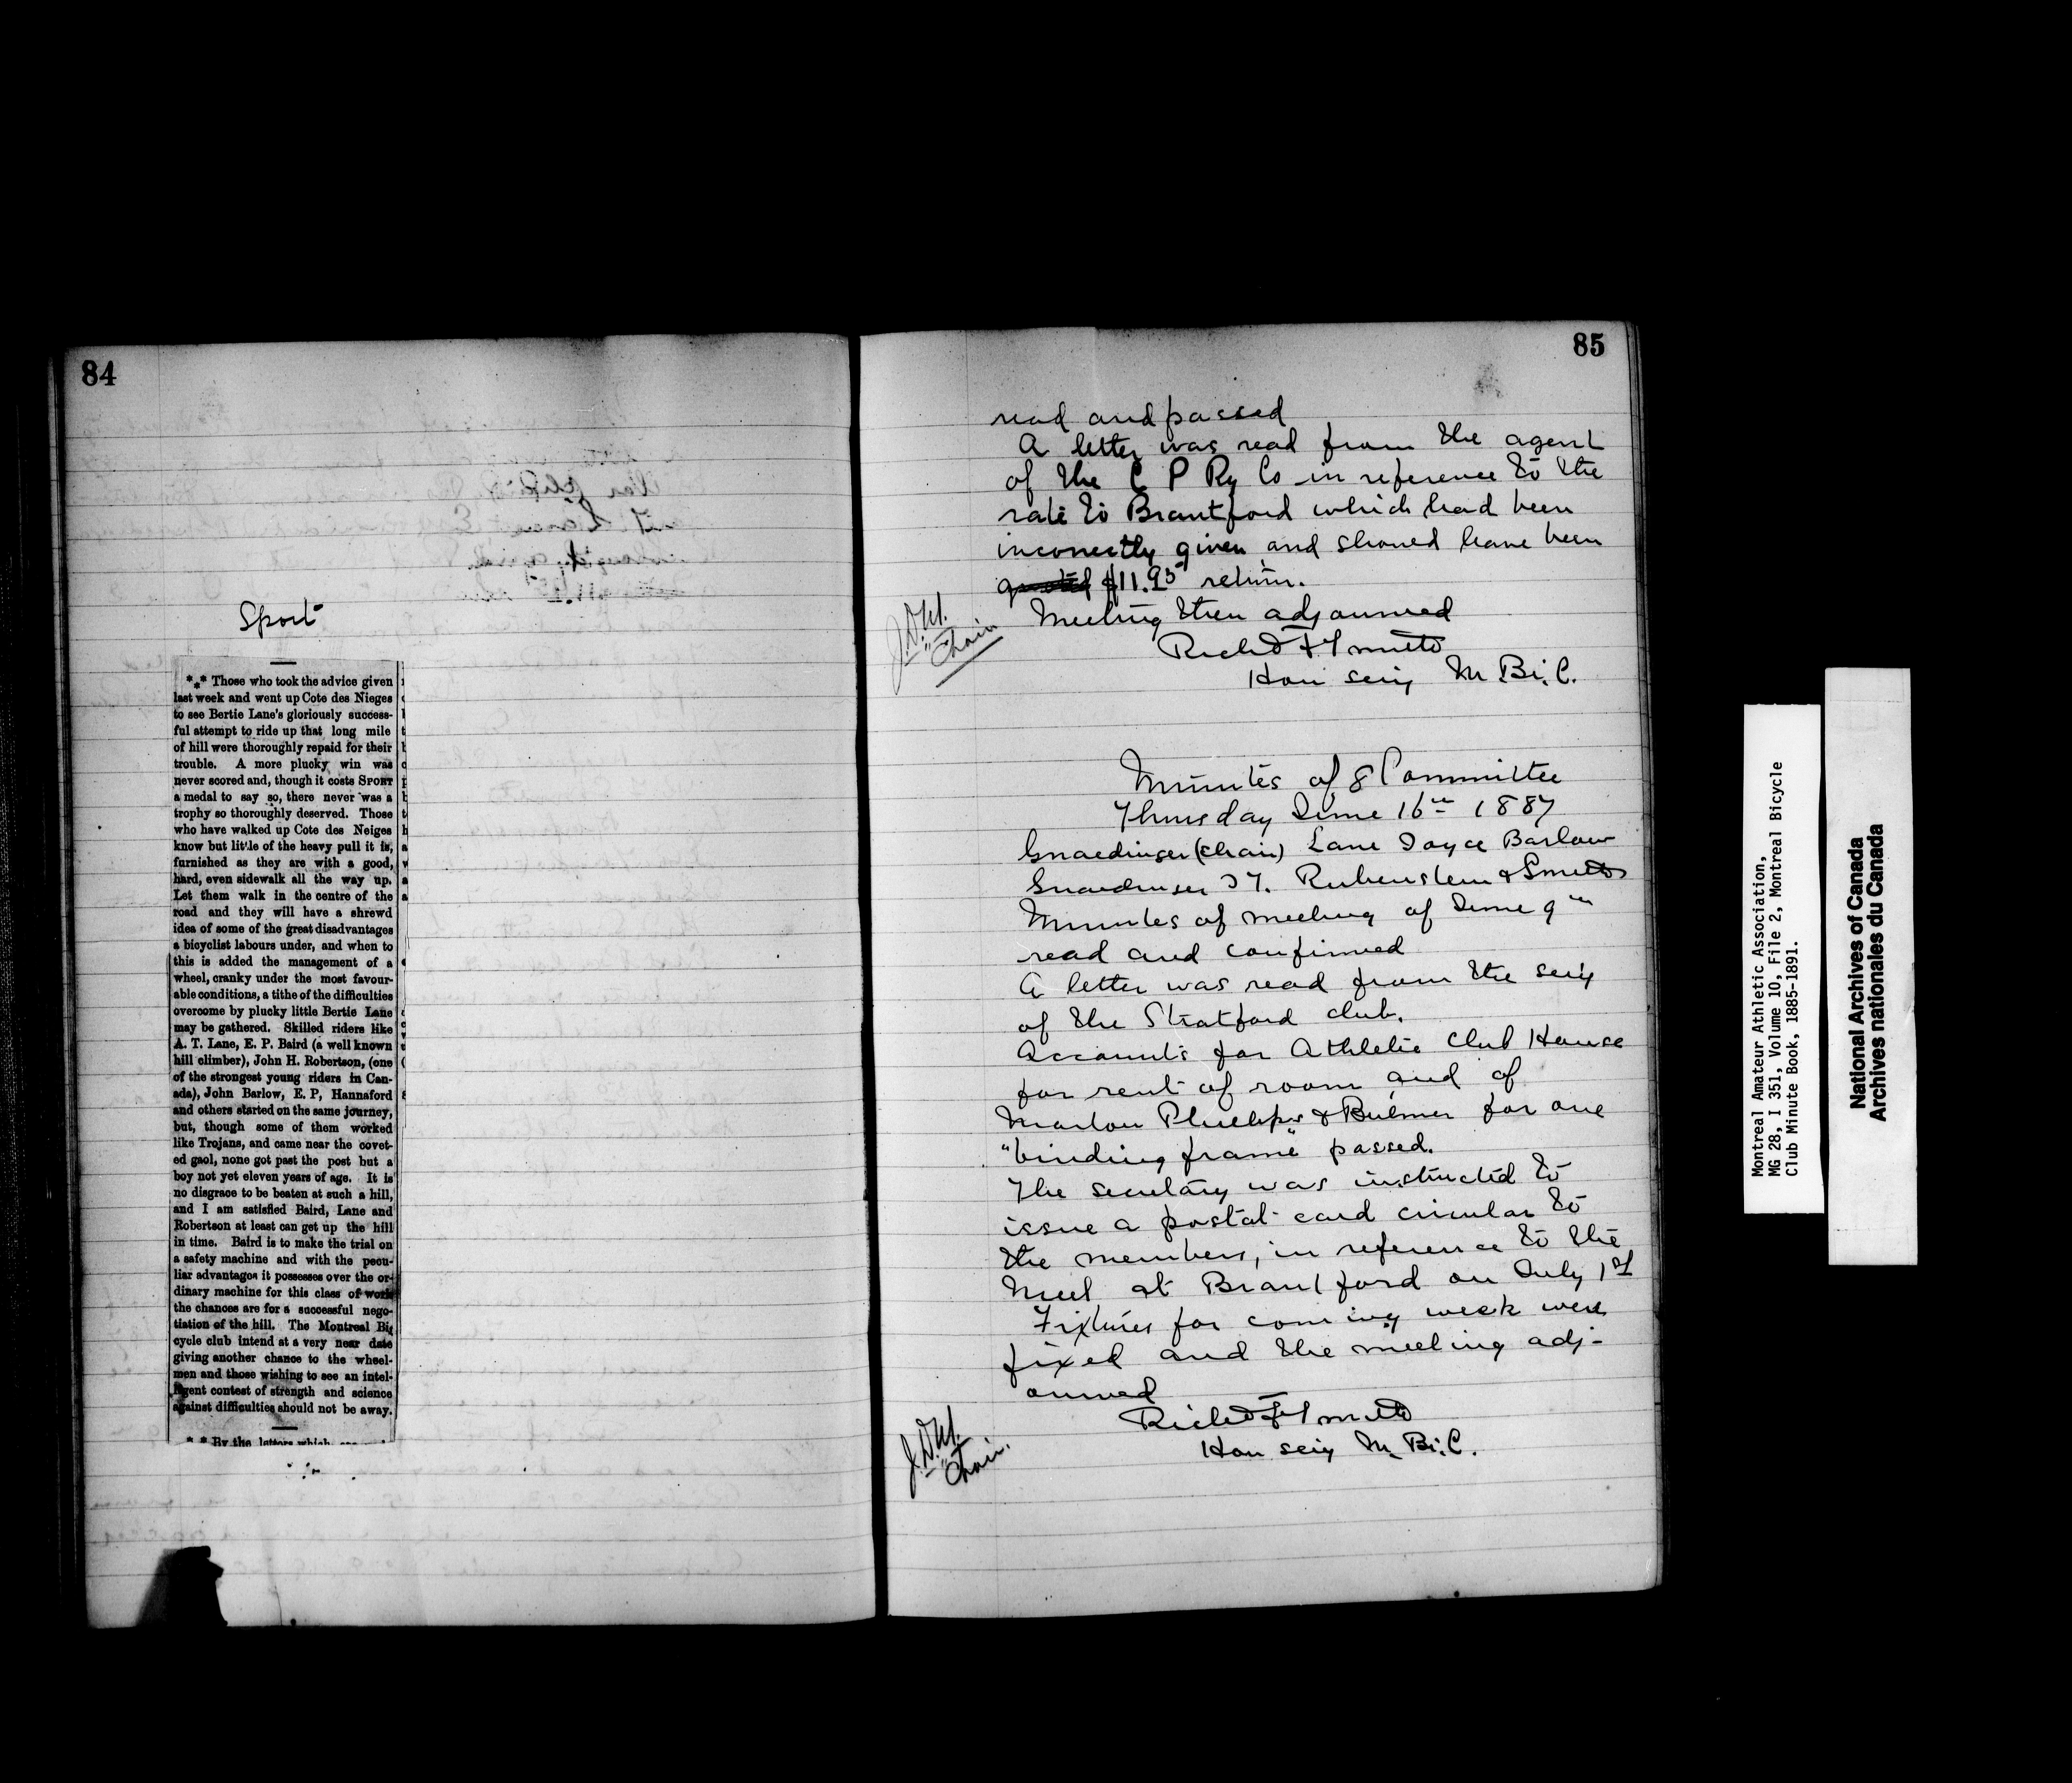 84
Sport
*** Those who took the advice given
last week and went up Cote des Nieges
to see Bertie Lane's gloriously success-
ful attempt to ride up that long mile
of hill were thoroughly repaid for their
trouble. A more plucky win was
never scored and, though it costs SPORT
a medal to say so, there never was a
trophy so thoroughly deserved. Those
who have walked up Cote des Neiges
know but little of the heavy pull it is,
furnished as they are with a good,
hard, even sidewalk all the way up.
Let them walk in the centre of the
road and they will have a shrewd
idea of some of the great disadvantages
a bicyclist labours under, and when to
this is added the management of a
wheel, cranky under the most favour-
able conditions, a tithe of the difficulties
overcome by plucky little Bertie Lane
may be gathered. Skilled riders like
A. T. Lane, E. P. Baird (a well known
hill climber), John H. Robertson, (one
of the strongest young riders in Can-
ada), John Barlow, E. P, Hannaford
and others started on the same journey,
but, though some of them worked
like Trojans, and came near the covet-
ed gaol, none got past the post but a
boy not yet eleven years of age. It is
no disgrace to be beaten at such a hill,
and I am satisfied Baird, Lane and
Robertson at least can get up the hill
in time. Baird is to make the trial on
a safety machine and with the pecu-
liar advantages it possesses over the or-
dinary machine for this class of work
the chances are for a successful nego-
tiation of the hill. The Montreal Bi
cycle club intend at a very near date
giving another chance to the wheel-
men and those wishing to see an intel-
ligent contest of strength and science
against difficulties should not be away.
* * By the letters which
85
read and passed
A letter was read from the agent
of the C P Ry Co in reference to the
rate to Brantford which had been
incorrectly given and should have been
quoted $11.95 return.
Meeting then adjourned
Richd F Smith
Hon secy M. Bi. C.
J.D.M.
"Chair
Minutes of 8 Committee
Thursday June 16th 1887
Gnaedinger (Chair) Lane Joyce Barlow
Gnaedinger Rubenstein & Smith
Minutes of meeting of June 9th
read and confirmed
A letter was read from the secy
of the Stratford club.
Accounts for Athletic Club House
for rent of room and of
Morton Phillips & Bulmer for one
"binding frame" passed.
The secretary was instructed to
issue a postal card circular to
the members, in reference to the
Meet at Brantford on July 1st
Fixtures for coming week were
fixed and the meeting adj-
ourned
Richd F Smith
Hon secy M. Bi. C.
J.D.M.
"Chair.
Montreal Amateur Athletic Association,
MG 28, I 351, Volume 10, File 2, Montreal Bicycle
Club Minute Book, 1885-1891.
National Archives of Canada
Archives nationales du Canada